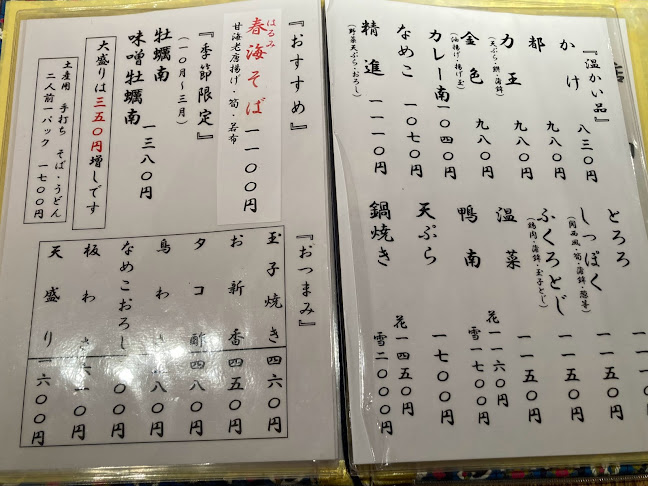 『温かい品』
かけ 八三〇円
都 九八〇円
力王 九八〇円
(天ぷら・餅・蒲鉾)
金色 九八〇円
(油揚げ・揚げ玉)
カレー南 一〇四〇円
なめこ 一〇七〇円
精進 一一一〇円
(野菜天ぷら・おろし)
とろろ
しっぽく 一一五〇円
(関西風・筍・蒲鉾・葱等)
ふくろとじ 一一五〇円
(鶏肉・蒲鉾・玉子とじ)
温菜 一一五〇円
鴨南 花 一一六〇円
雪 一七〇〇円
天ぷら 一七〇〇円
鍋焼き 花 一四五〇円
雪 二〇〇〇円
『おすすめ』
はるみ
春海そば 一一〇〇円
甘海老唐揚げ・筍・若布
『季節限定』
(一〇月〜三月)
牡蠣南
味噌牡蠣南 一三八〇円
大盛りは三五〇円増しです
土産用 手打ち そば・うどん
二人前一パック 一七〇〇円
『おつまみ』
玉子焼き 四六〇円
お新香 四五〇円
タコ酢 四八〇円
鳥わさ
なめこおろし
板わさ
天盛り 一六〇〇円